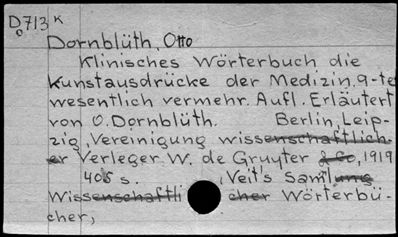 D713 K
o
Dornblüth, Otto
Klinisches Wörterbuch die
Kunstausdrücke der Medizin, 9-te
wesentlich vermehr. Aufl. Erläutert
von O. Dornblüth. Berlin, Leip-
zig, Vereinigung wissenschaftlich
er Verleger W. de Gruyter & Co, 1919
405 s. , Veit's Samlung
Wissenschaftli cher Wörterbü-
cher,